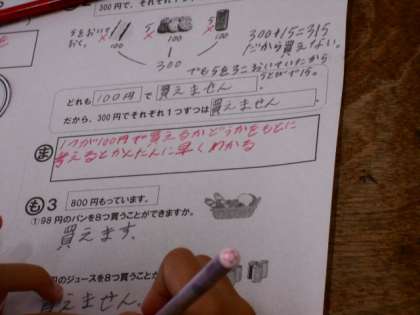 300円で、それぞれ1つ
5をおいて
おく。
5
5
100
100
100
300
300+15=315
だから買えない。
でも5を3こおいていたから
で15。
どれも 100円 で 買えません 。
だから、300円でそれぞれ1つずつは 買えません 。
ま
1つが100円で買えるかどうかをもとに
考えるとかんたんに早くわかる
も 3 800円もっています。
① 98円のパンを8つ買うことができますか。
買えます。
円のジュースを8つ買うことが
買えません。